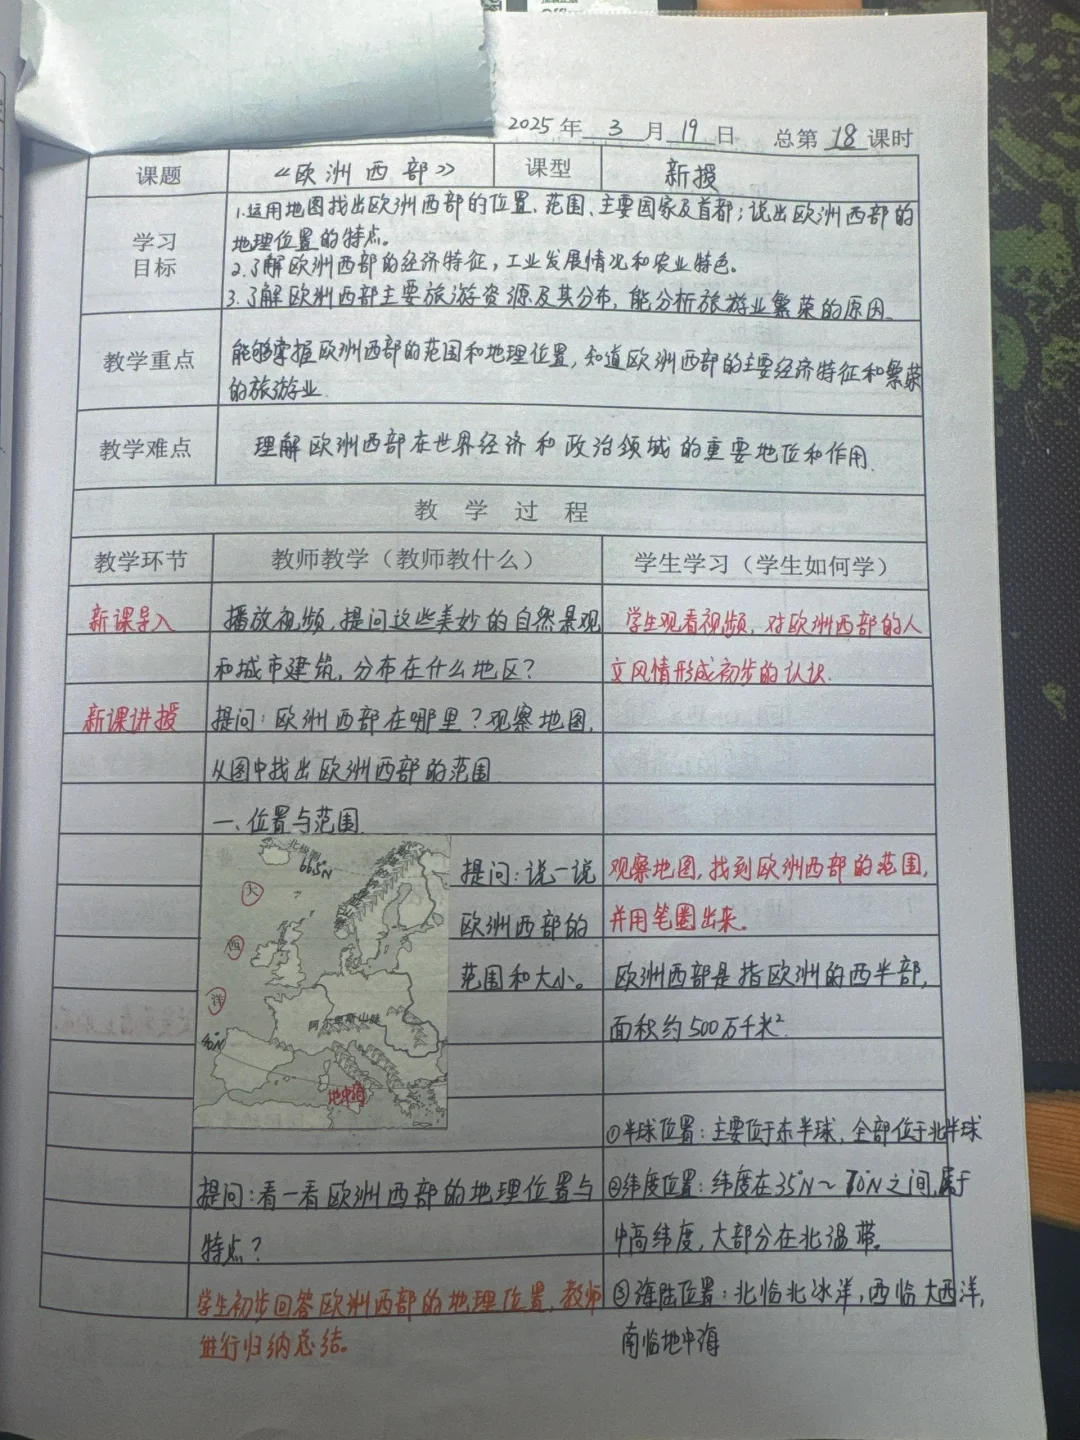 2025年 3 月 19 日 总第 18 课时
课题 《欧洲西部》 课型 新授
学习目标
1.运用地图找出欧洲西部的位置、范围、主要国家及首都；说出欧洲西部的
地理位置的特点。
2.了解欧洲西部的经济特征，工业发展情况和农业特色。
3.了解欧洲西部主要旅游资源及其分布，能分析旅游业繁荣的原因。
教学重点
能够掌握欧洲西部的范围和地理位置，知道欧洲西部的主要经济特征和繁荣
的旅游业
教学难点
理解欧洲西部在世界经济和政治领域的重要地位和作用.
教 学 过 程
教学环节 教师教学（教师教什么） 学生学习（学生如何学）
新课导入 播放视频，提问这些美妙的自然景观 学生观看视频，对欧洲西部的人
和城市建筑，分布在什么地区？ 文风情形成初步的认识.
新课讲授 提问：欧洲西部在哪里？观察地图，
从图中找出欧洲西部的范围
一、位置与范围
66.5°N
大
西
洋
阿尔卑斯山脉
地中海
提问：说一说 观察地图，找到欧洲西部的范围，
欧洲西部的 并用笔圈出来。
范围和大小。 欧洲西部是指欧洲的西半部，
面积约500万千米²
①半球位置：主要位于东半球，全部位于北半球
提问：看一看欧洲西部的地理位置与 ②纬度位置：纬度在35°N~70°N之间，属于
特点？ 中高纬度，大部分在北温带。
学生初步回答欧洲西部的地理位置，教师 ③海陆位置：北临北冰洋，西临大西洋，
进行归纳总结。 南临地中海